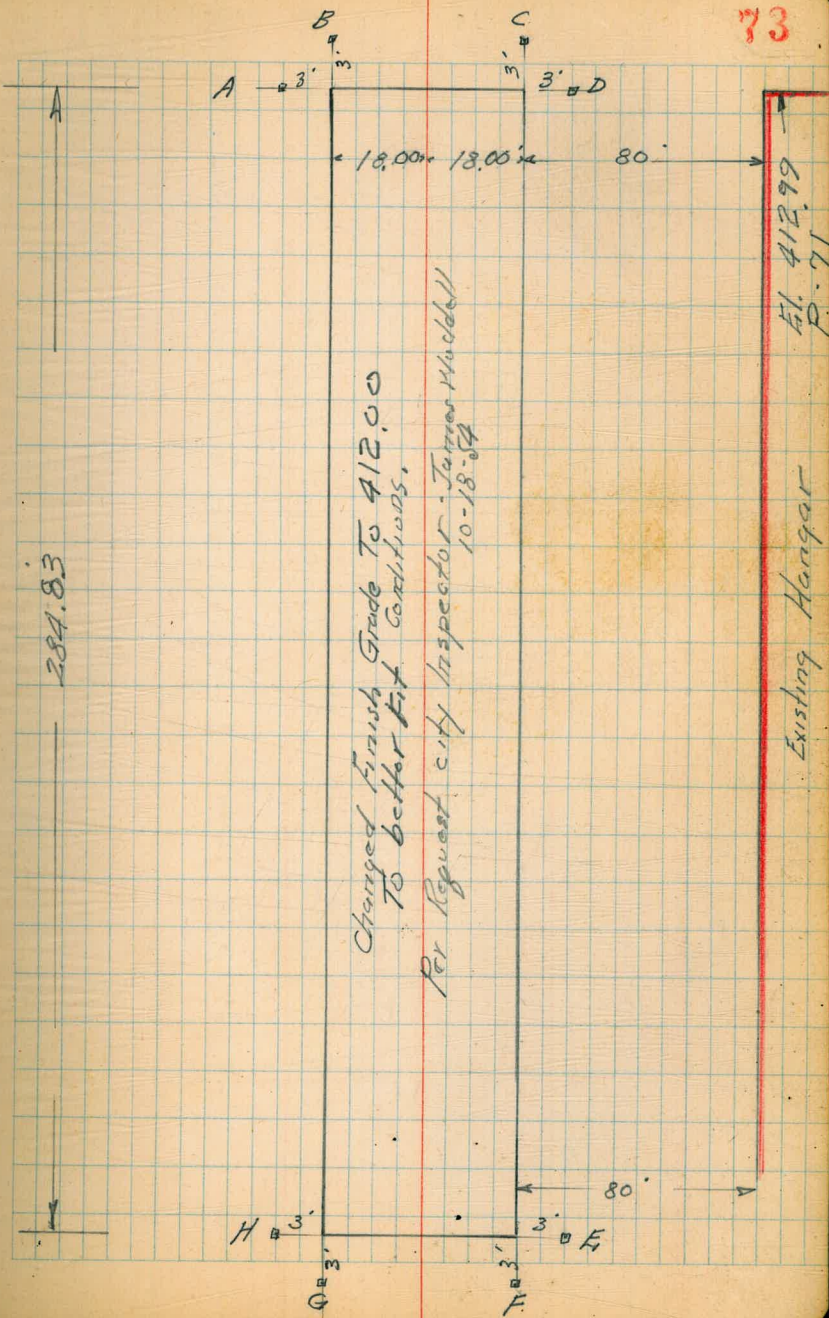 73
B
C
3'
3'
A
3'
3'
D
18.00
18.00'
80'
El. 412.99
P-71
284.83
Changed Finish Grade To 412.00
To better Fit Conditions.
Per Request city Inspector - James
10-18-54
Existing Hangar
80'
H
3'
3'
E
3'
3'
G
F